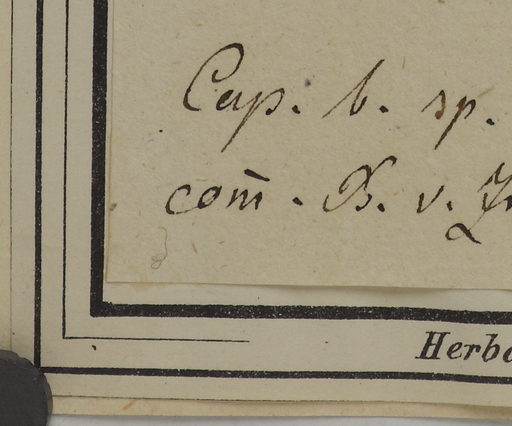 Cap. b. sp.
com̄. B. v.
Herb